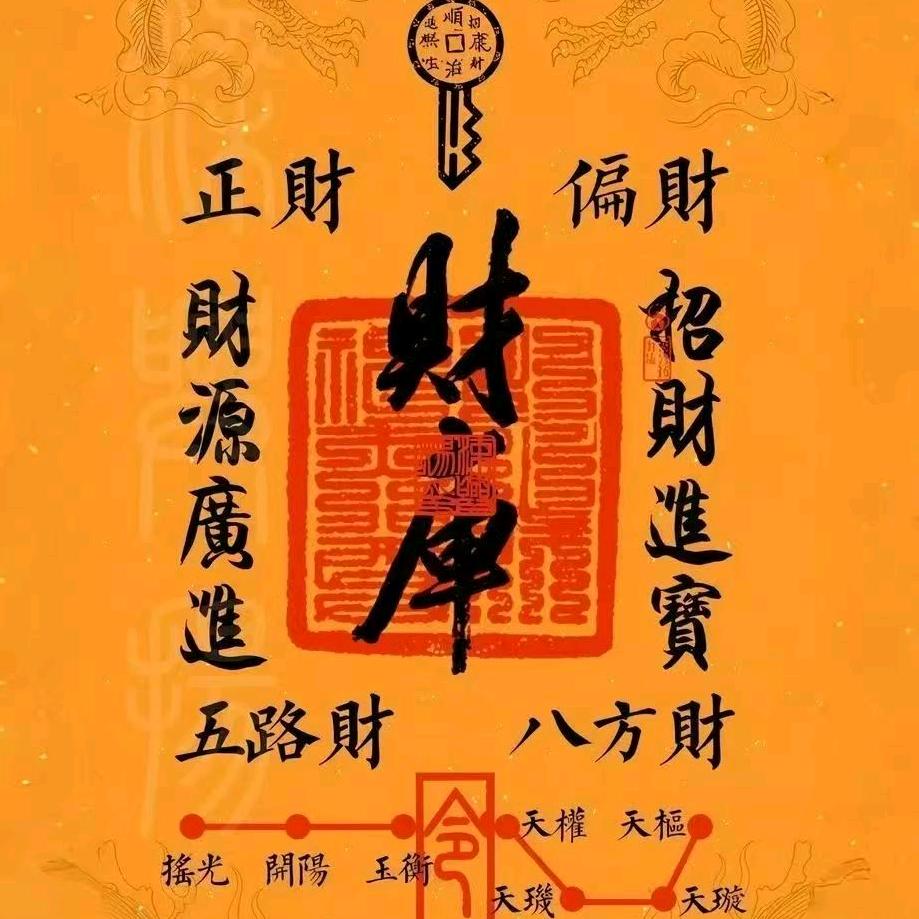 順
康
財
治
正財
偏財
財庫
招財進寶
財源廣進
五路財
八方財
令
天權
天樞
搖光
開陽
玉衡
天璣
天璇